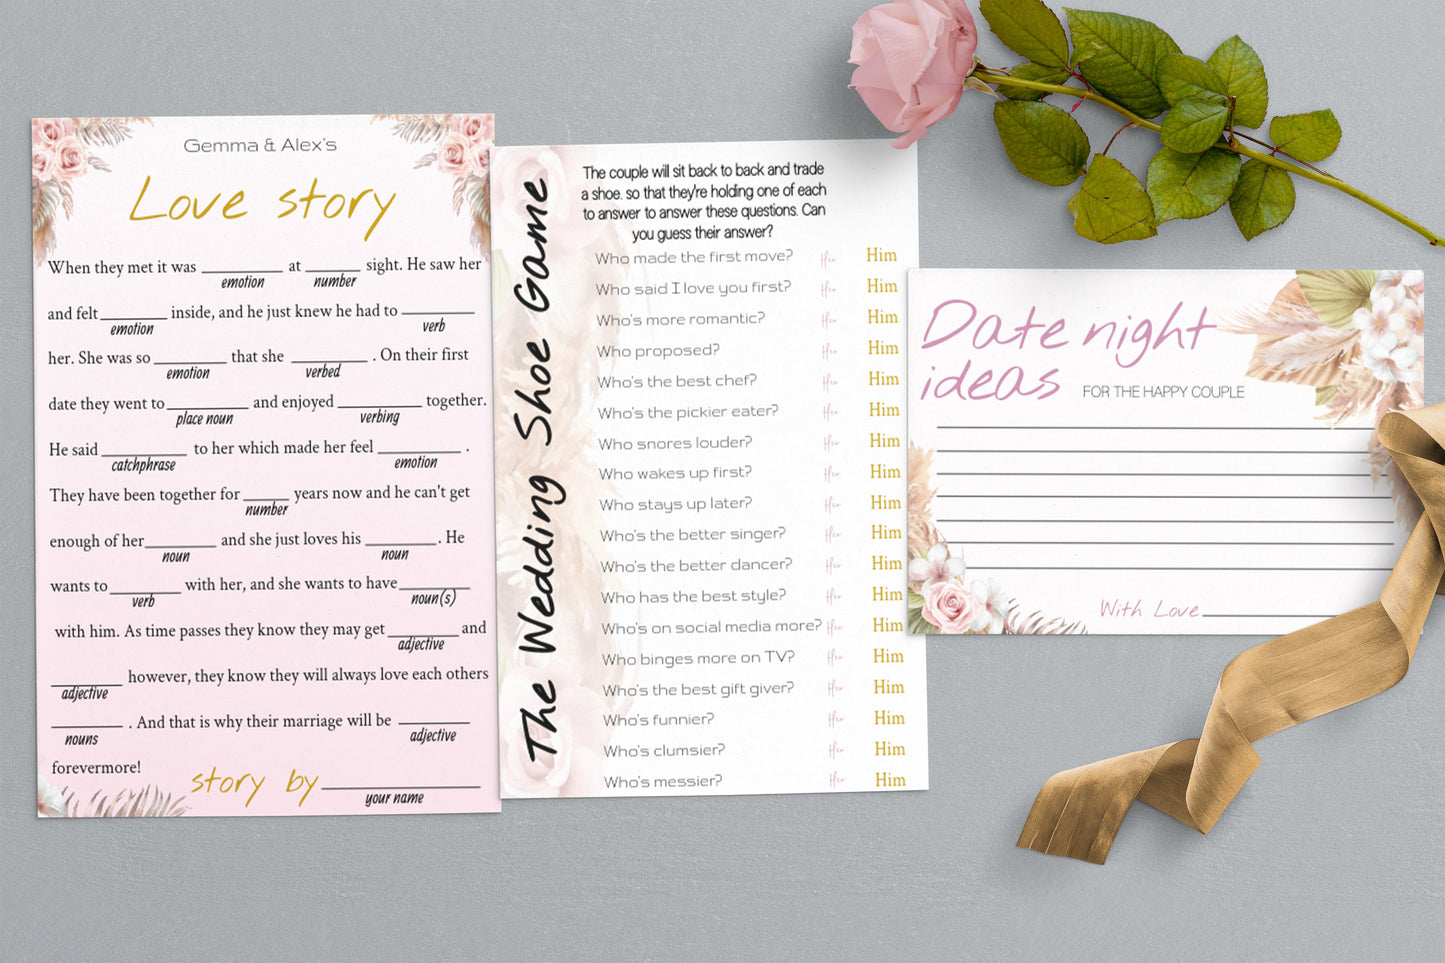 Gemma & Alex's
Love story
When they met it was ____ at ____ sight. He saw her
emotion number
and felt ____ inside, and he just knew he had to ____
emotion verb
her. She was so ____ that she ____ . On their first
emotion verbed
date they went to ____ and enjoyed ____ together.
place noun verbing
He said ____ to her which made her feel ____ .
catchphrase emotion
They have been together for ____ years now and he can't get
number
enough of her ____ and she just loves his ____. He
noun noun
wants to ____ with her, and she wants to have ____
verb noun(s)
with him. As time passes they know they may get ____ and
adjective
____ however, they know they will always love each others
adjective
____ . And that is why their marriage will be ____
nouns adjective
forevermore!
story by ____
your name
The Wedding Shoe Game
The couple will sit back to back and trade
a shoe. so that they're holding one of each
to answer to answer these questions. Can
you guess their answer?
Who made the first move? Her Him
Who said I love you first? Her Him
Who's more romantic? Her Him
Who proposed? Her Him
Who's the best chef? Her Him
Who's the pickier eater? Her Him
Who snores louder? Her Him
Who wakes up first? Her Him
Who stays up later? Her Him
Who's the better singer? Her Him
Who's the better dancer? Her Him
Who has the best style? Her Him
Who's on social media more? Her Him
Who binges more on TV? Her Him
Who's the best gift giver? Her Him
Who's funnier? Her Him
Who's clumsier? Her Him
Who's messier? Her Him
Date night
ideas FOR THE HAPPY COUPLE
With Love ____